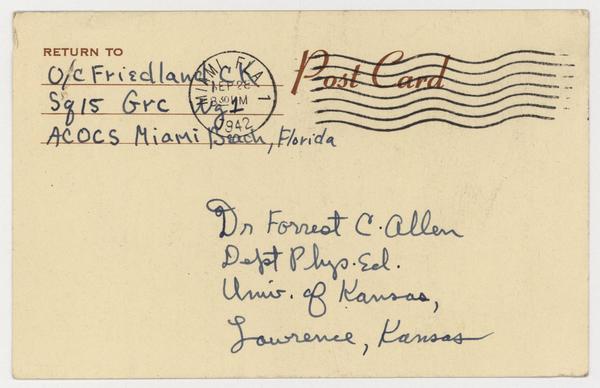 RETURN TO
O/C Friedland C K
Sq 15 Grc
ACOCS Miami Beach, Florida
MIAMI, FLA. 1
SEP 28
PM
1942
Post Card
Dr Forrest C. Allen
Dept Phys. Ed.
Univ. of Kansas,
Lawrence, Kansas